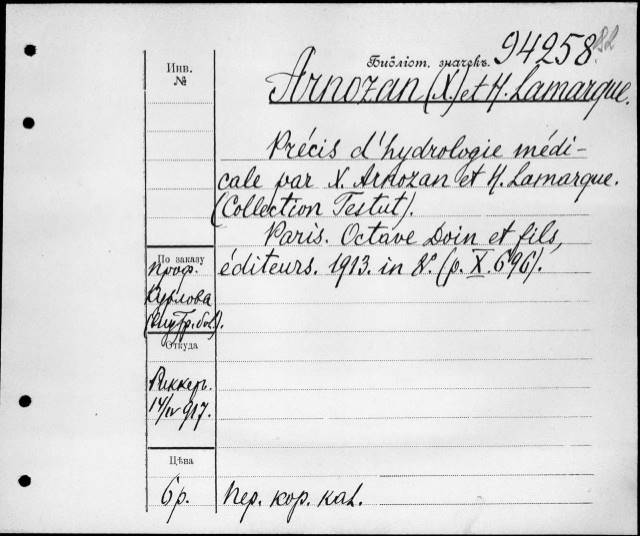 Инв.
№
Библіот. значекъ.
94258
Arnozan (X.) et H. Lamarque.
Précis d'hydrologie médi-
cale par X. Arnozan et H. Lamarque.
(Collection Testut).
Paris. Octave Doin et fils,
éditeurs. 1913. in 8º. (p. X. 696).
По заказу
Проф.
Курлова
(Внутр. бол.).
Откуда
Риккер.
14/IV 917.
Цѣна
6 р.
Пер. кор. каl.